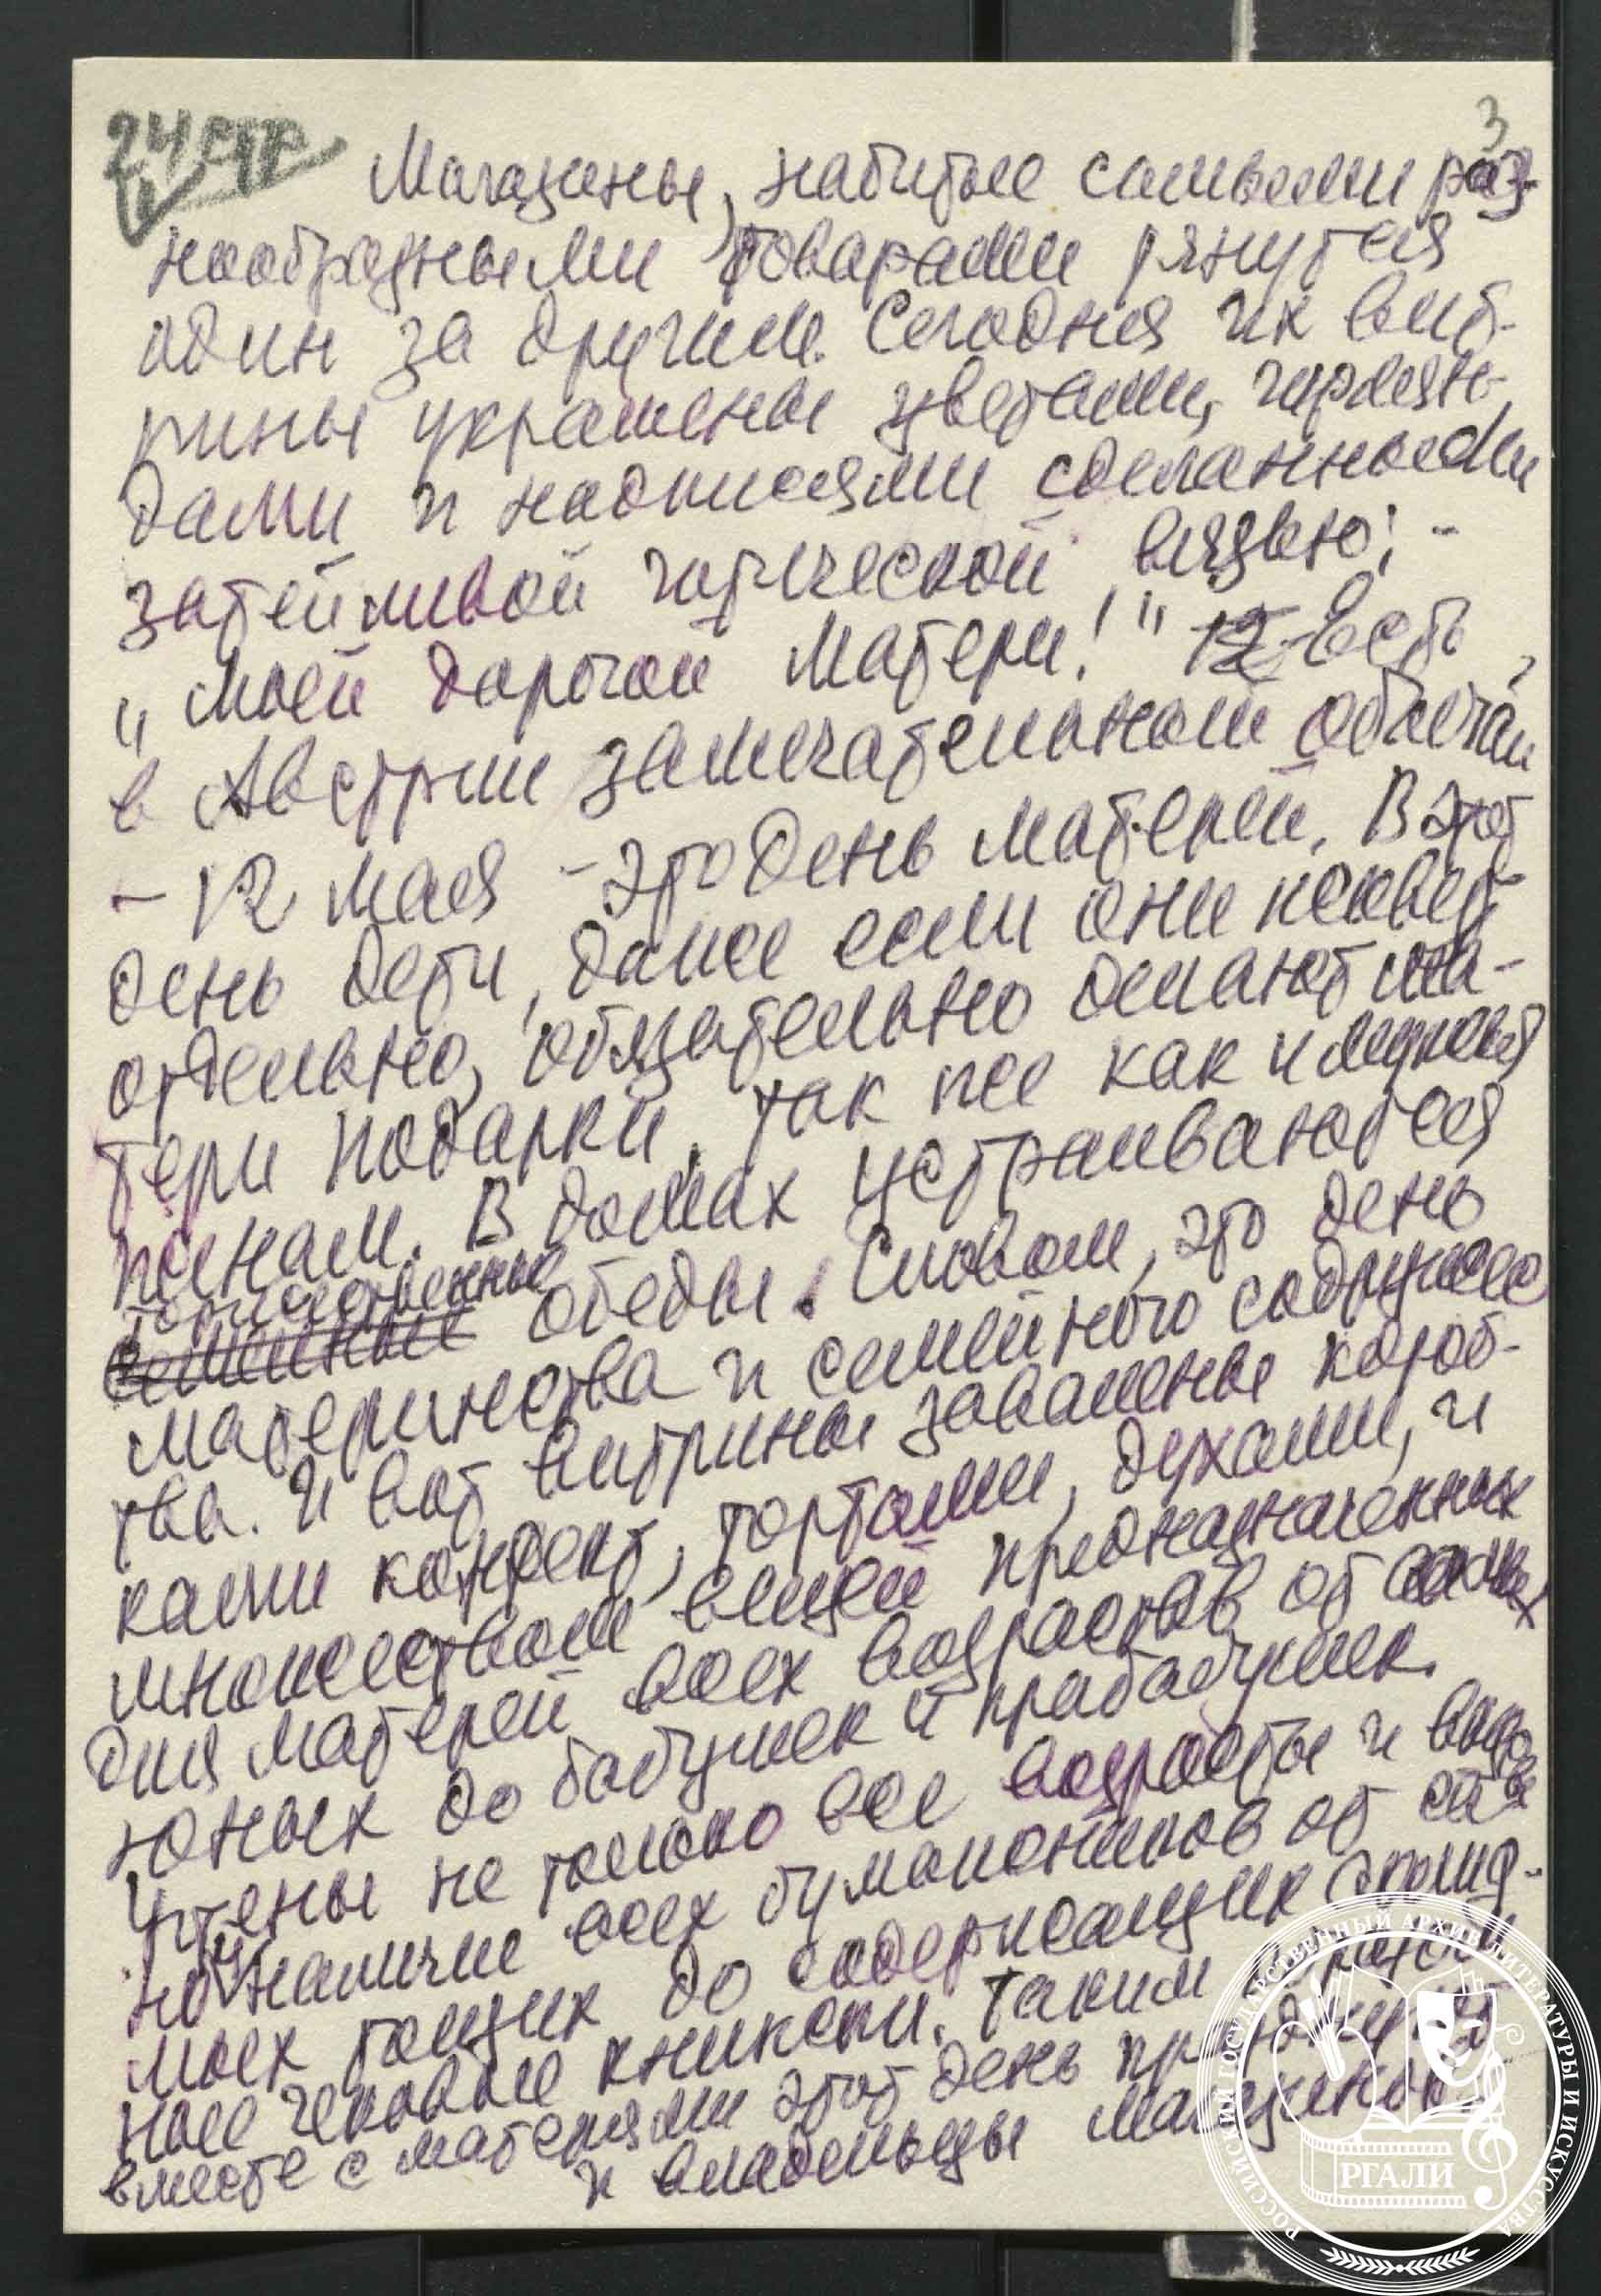 3
24 стр
Магазины, набитые самыми раз-
нообразными товарами тянутся
один за другим. Сегодня их вит-
рины украшены цветами, гирлян-
дами и надписями сделанными
затейливой готической вязью: -
"Моей дорогой матери!" 12 Есть
в Австрии замечательный обычай
- 12 мая - это день матерей. В этот
день дети, даже если они живут
отдельно, обязательно делают ма-
тери подарки, так же как и мужья
женам. В домах устраиваются
торжественные
семейные обеды. Словом, это день
материнства и семейного содружес
тва. И вот витрины завалены короб-
ками конфект, тортами, духами, и
множеством вещей предназначенных
для матерей всех возрастов от самых
юных до бабушек и прабабушек.
Учтены не только все возрасты и вкусы
но и наличие всех бумажников от са
мых тощих до содержащих солид-
ные чековые книжки. Таким образом
вместе с матерями этот день празднуют
и владельцы магазинов
РОССИЙСКИЙ ГОСУДАРСТВЕННЫЙ АРХИВ ЛИТЕРАТУРЫ И ИСКУССТВА
РГАЛИ